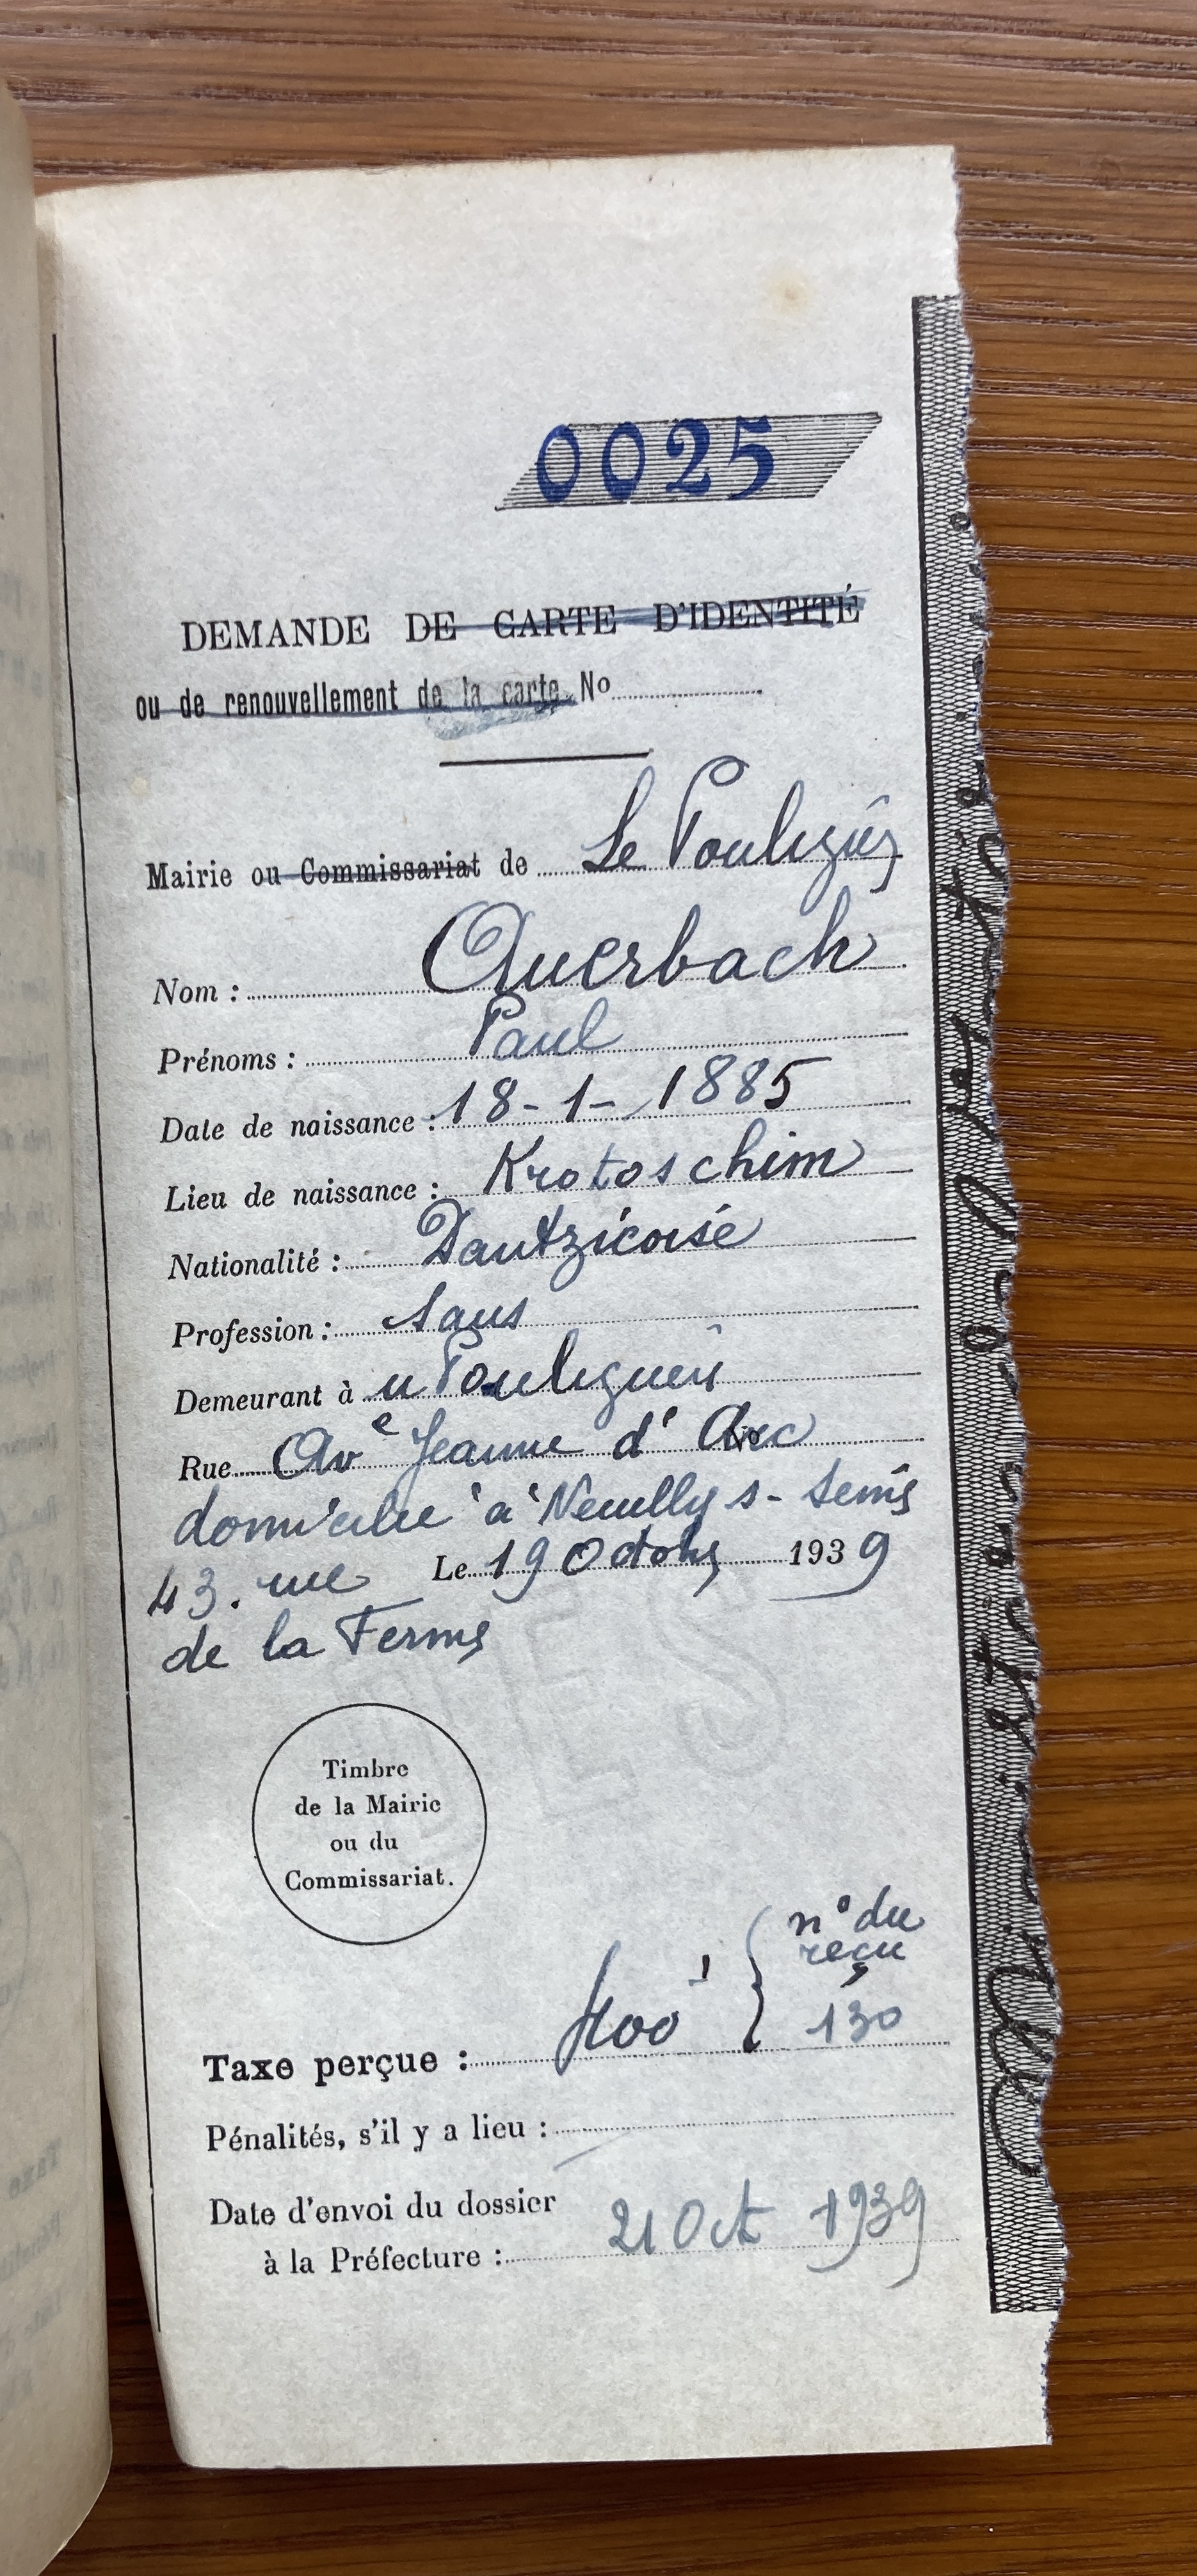 0025
DEMANDE DE CARTE D'IDENTITÉ
ou de renouvellement de la carte No
Mairie ou Commissariat de Le Pouliguen
Nom : Auerbach
Prénoms : Paul
Date de naissance : 18-1-1885
Lieu de naissance : Krotoschim
Nationalité : Dantzicoise
Profession : Sans
Demeurant à u Pouliguen
Rue Av e Jeanne d'Arc
domicilié à Neuilly s- Seine
43. rue Le 19 Octobre 1939
de la Ferme
Timbre
de la Mairie
ou du
Commissariat.
n° du
reçu
130
Taxe perçue : 400
Pénalités, s'il y a lieu :
Date d'envoi du dossier
à la Préfecture : 21 Oct 1939